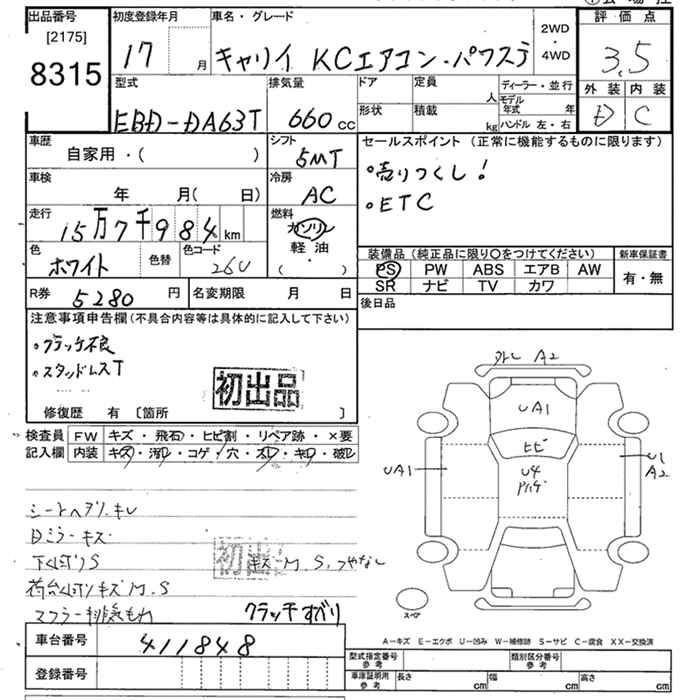 出品番号 初度登録年月 車名・グレード 評価点
[2175]
8315
17 月 キャリイ KCエアコン・パワステ 2WD・4WD 3.5
型式 排気量 ドア 定員 人 ディーラー・並行 外装 内装
EBD-DA63T 660cc 形状 積載 kg モデル年式 年 ハンドル 左・右 D C
車歴 自家用・( ) シフト 5MT
セールスポイント (正常に機能するものに限ります)
・売りつくし!
・ETC
車検 年 月( 日) 冷房 AC
走行 15万7千984km 燃料 ガソリン 軽油・( )
色 ホワイト 色替 色コード 26U
装備品 (純正品に限り○をつけてください) 新車保証書
PS PW ABS エアB AW 有・無
SR ナビ TV カワ
R券 5280円 名変期限 月 日 後日品
注意事項申告欄 (不具合内容等は具体的に記入して下さい)
・クラッチ不良
・スタッドレスT
初出品
修復歴 有 〔箇所 〕
検査員 FW キズ・飛石・ヒビ割・リペア跡・×要
記入欄 内装 キズ・汚レ・コゲ・穴・スレ・キレ・破レ
シートヘタリ.キレ
Dミラーキズ
下くぼりS キズ-M.S.つやなし
初出
荷台凹凸キズM.S
マフラー排気もれ クラッチすべり
外し A2
UA1
ヒビ
UA1 U4 U1
A2
スペア
A-キズ E-エクボ U-凹み W-補修跡 S-サビ C-腐食 XX-交換済
車台番号 411848
型式指定番号 参考 類別区分番号 参考
登録番号
車庫証明用 参考 長さ cm 幅 cm 高さ cm